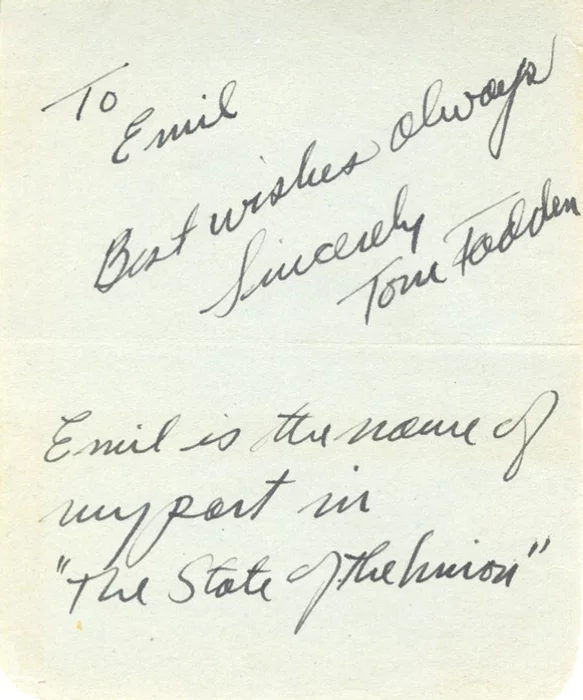 To
Emil
Best wishes always
Sincerely
Tom Fadden
Emil is the name of
my part in
"The State of the Union"